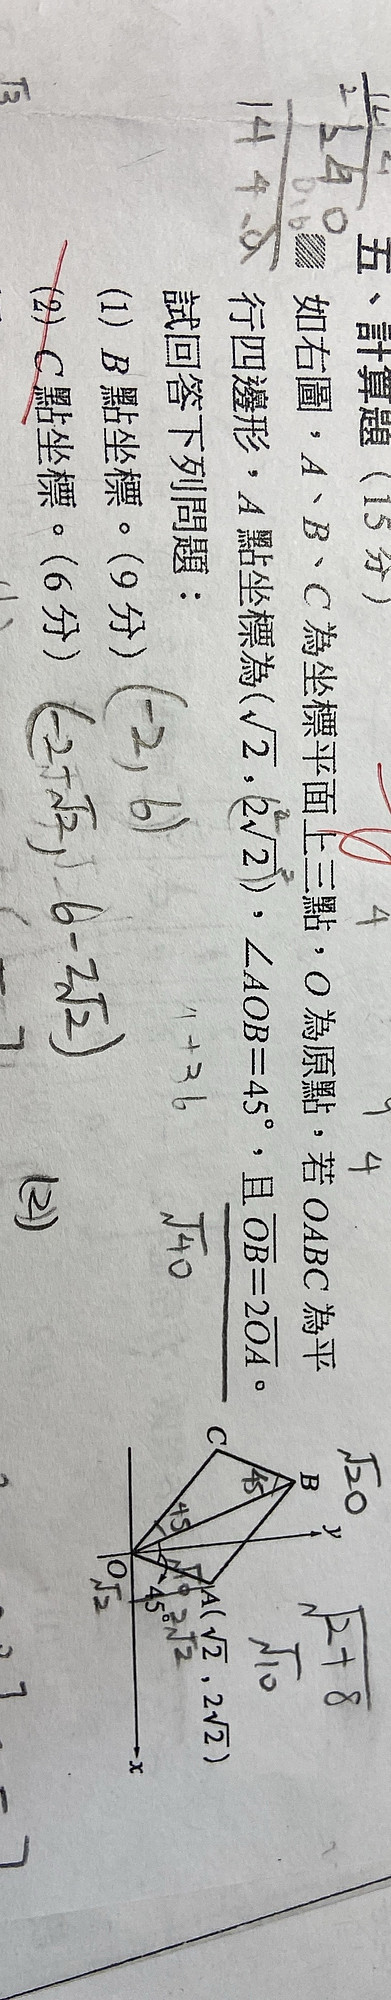 五、計算題（15分）
如右圖，A、B、C 為坐標平面上三點，O 為原點，若 OABC 為平
行四邊形，A 點坐標為(√2 , 2√2)，∠AOB=45°，且 OB=2OA。
試回答下列問題：
(1) B 點坐標。(9分) (-2, 6)
(2) C 點坐標。(6分) (-2-√2, 6-2√2)
4+36
√40
√20
√2+8
√10
y
B
C
45
45
45°
A(√2 , 2√2)
2√2
O
√2
x
4
4
√3